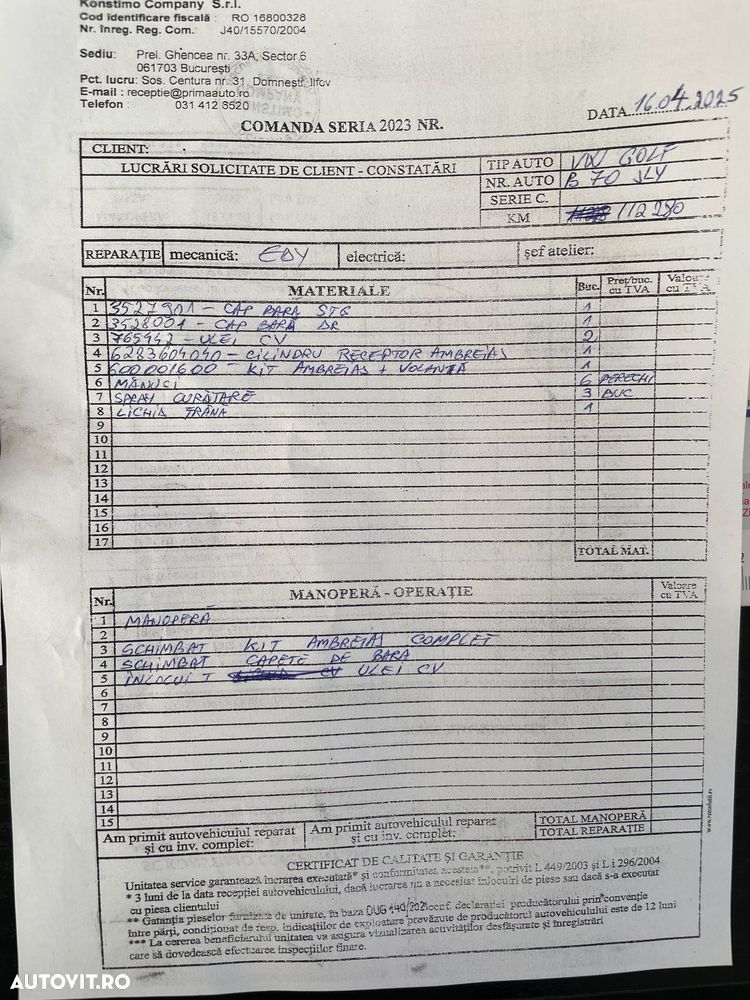 Konstimo Company S.r.l.
Cod identificare fiscală : RO 16800328
Nr. înreg. Reg. Com.: J40/15570/2004
Sediu: Prel. Ghencea nr. 33A, Sector 6
061703 București
Pct. lucru: Sos. Centura nr. 31, Domnești, Ilfov
E-mail : receptie@primaauto.ro
Telefon : 031 412 6520
DATA 16.04.2025
COMANDA SERIA 2023 NR.
CLIENT:
LUCRĂRI SOLICITATE DE CLIENT - CONSTATĂRI
TIP AUTO VW GOLF
NR. AUTO B 70 JLY
SERIE C.
KM 112 280
REPARAȚIE mecanică: EDY electrică: șef atelier:
Nr. MATERIALE Buc. Preț/buc. cu TVA Valoare cu TVA
1 3527901 - CAP BARA STG 1
2 3528001 - CAP BARĂ DR 1
3 765942 - ULEI CV 2
4 6283604040 - CILINDRU RECEPTOR AMBREIAJ 1
5 600001600 - KIT AMBREIAJ + VOLANTĂ 1
6 MĂNUȘI 6 PERECHI
7 SPRAY CURĂȚARE 3 BUC
8 LICHID FRÂNĂ 1
9
10
11
12
13
14
15
16
17
TOTAL MAT.
Nr. MANOPERĂ - OPERAȚIE Valoare cu TVA
1 MANOPERĂ
2
3 SCHIMBAT KIT AMBREIAJ COMPLET
4 SCHIMBAT CAPETE DE BARA
5 ÎNLOCUIT ULEI CV
6
7
8
9
10
11
12
13
14
15
TOTAL MANOPERĂ
TOTAL REPARAȚIE
Am primit autovehiculul reparat și cu inv. complet:
Am primit autovehiculul reparat și cu inv. complet:
CERTIFICAT DE CALITATE ȘI GARANȚIE
Unitatea service garantează lucrarea executată* și conformitatea acesteia**, potrivit L 449/2003 și L 296/2004
* 3 luni de la data recepției autovehiculului, dacă lucrarea nu a necesitat înlocuiri de piese sau dacă s-a executat
cu piesa clientului
** Garanția pieselor furnizate de unitate, în baza OUG 140/2021 conf. declarației producătorului prin convenție
între părți, condiționat de resp. indicațiilor de exploatare prevăzute de producătorul autovehiculului este de 12 luni
*** La cererea beneficiarului unitatea va asigura vizualizarea activităților desfășurate și înregistrări
care să dovedească efectuarea inspecțiilor finare.
AUTOVIT.RO